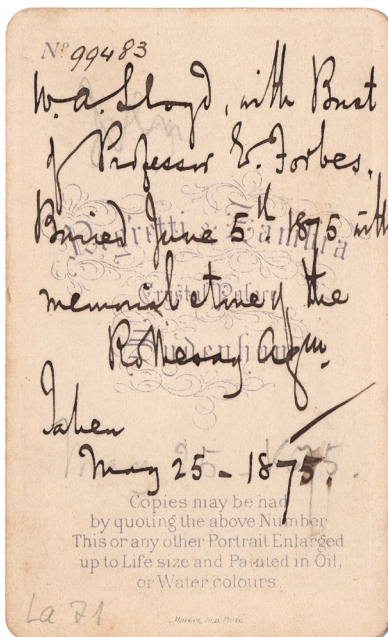 No. 99483
W. A. Lloyd, with Bust
of Professor E. Forbes.
Buried June 5th 1875 with
memorial stone of the
Rothesay Aqm.
Taken
May 25 - 1875.
Negretti & Zambra
Crystal Palace
Sydenham
Copies may be had
by quoting the above Number
This or any other Portrait Enlarged
up to Life size and Painted in Oil,
or Water colours.
La 71